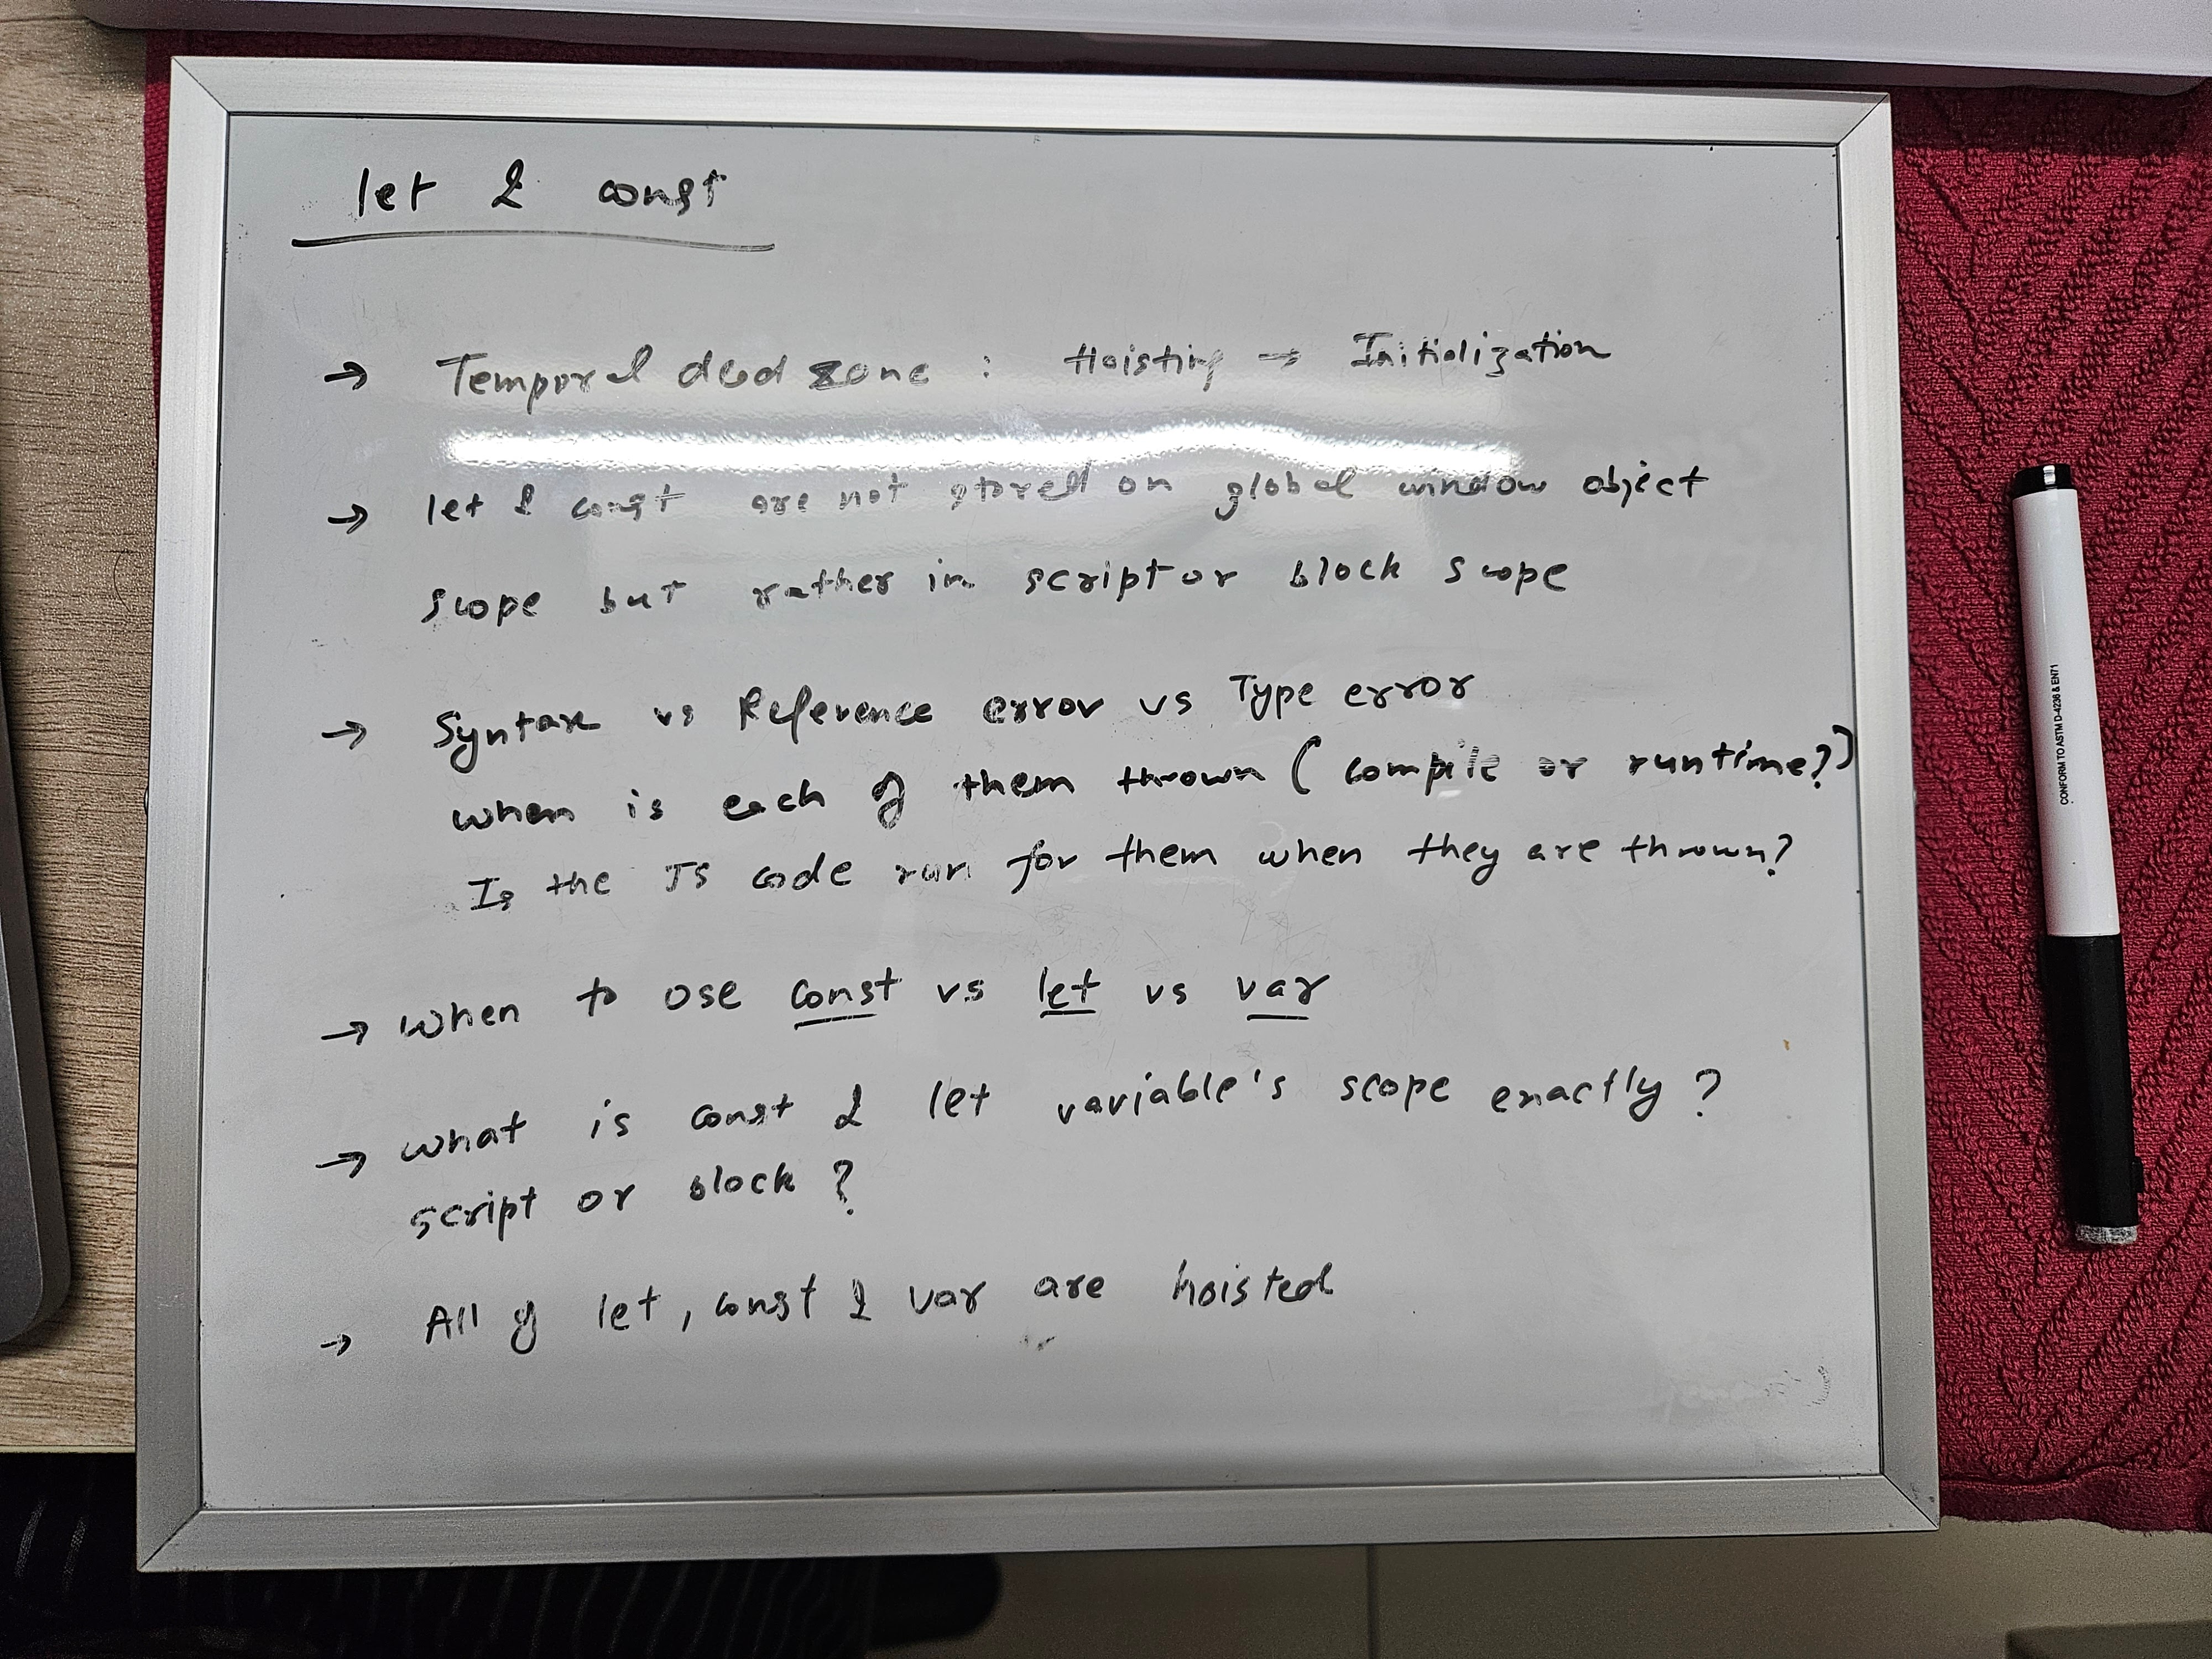 let & const
→ Temporal dead zone : Hoisting → Initialization
→ let & const are not stored on global window object
scope but rather in script or block scope
→ Syntax vs Reference error vs Type error
when is each of them thrown ( compile or runtime?)
Is the JS code run for them when they are thrown?
→ when to use const vs let vs var
→ what is const & let variable's scope exactly ?
script or block ?
→ All of let, const & var are hoisted
CONFORM TO ASTM D-4236 & EN71